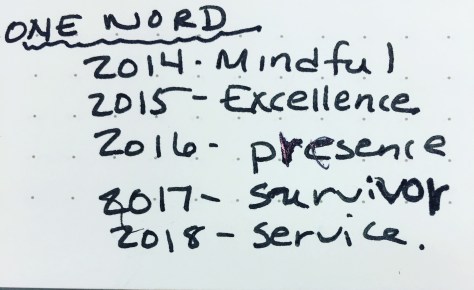 ONE WORD
2014. Mindful
2015 - Excellence
2016 - presence
2017 - survivor
2018 - service.